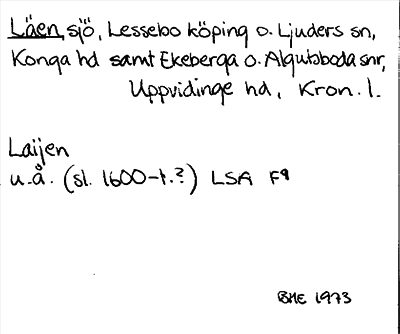 Läen, sjö, Lessebo köping o. Ljuders sn,
Konga hd samt Ekeberga o. Algutsboda snr,
Uppvidinge hd, Kron. l.
Laijen
u.å. (sl. 1600-t.?) LSA F9
BHE 1973